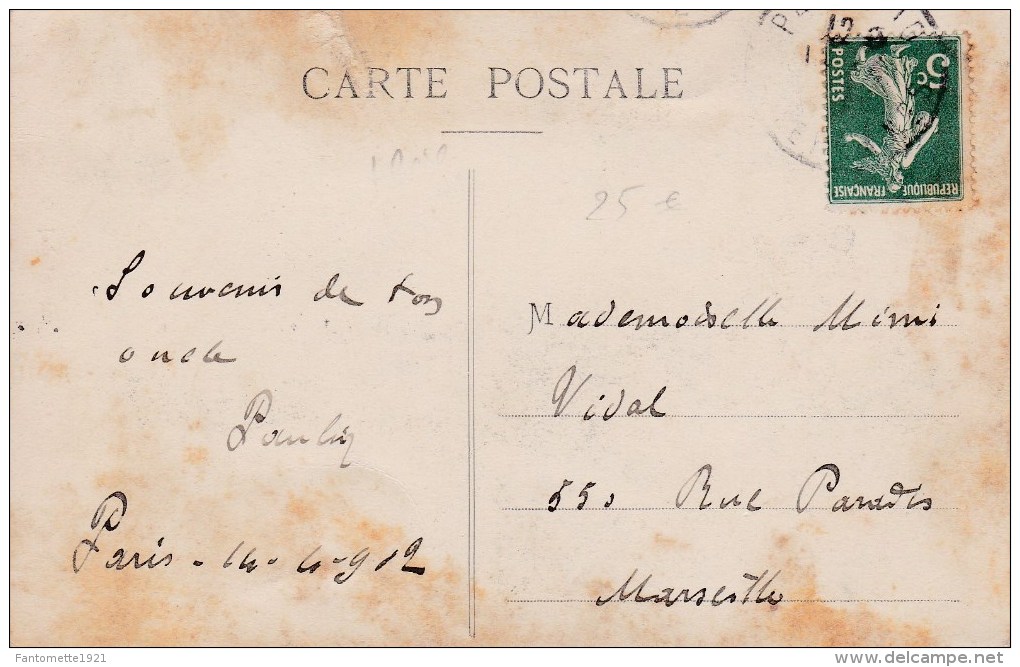 CARTE POSTALE
5c
POSTES
REPUBLIQUE FRANÇAISE
25 €
Souvenir de ton
oncle
Paris - 14-4-912
Mademoiselle Mimi
Vidal
550 Rue Paradis
Marseille
Fantomette1921
www.delcampe.net